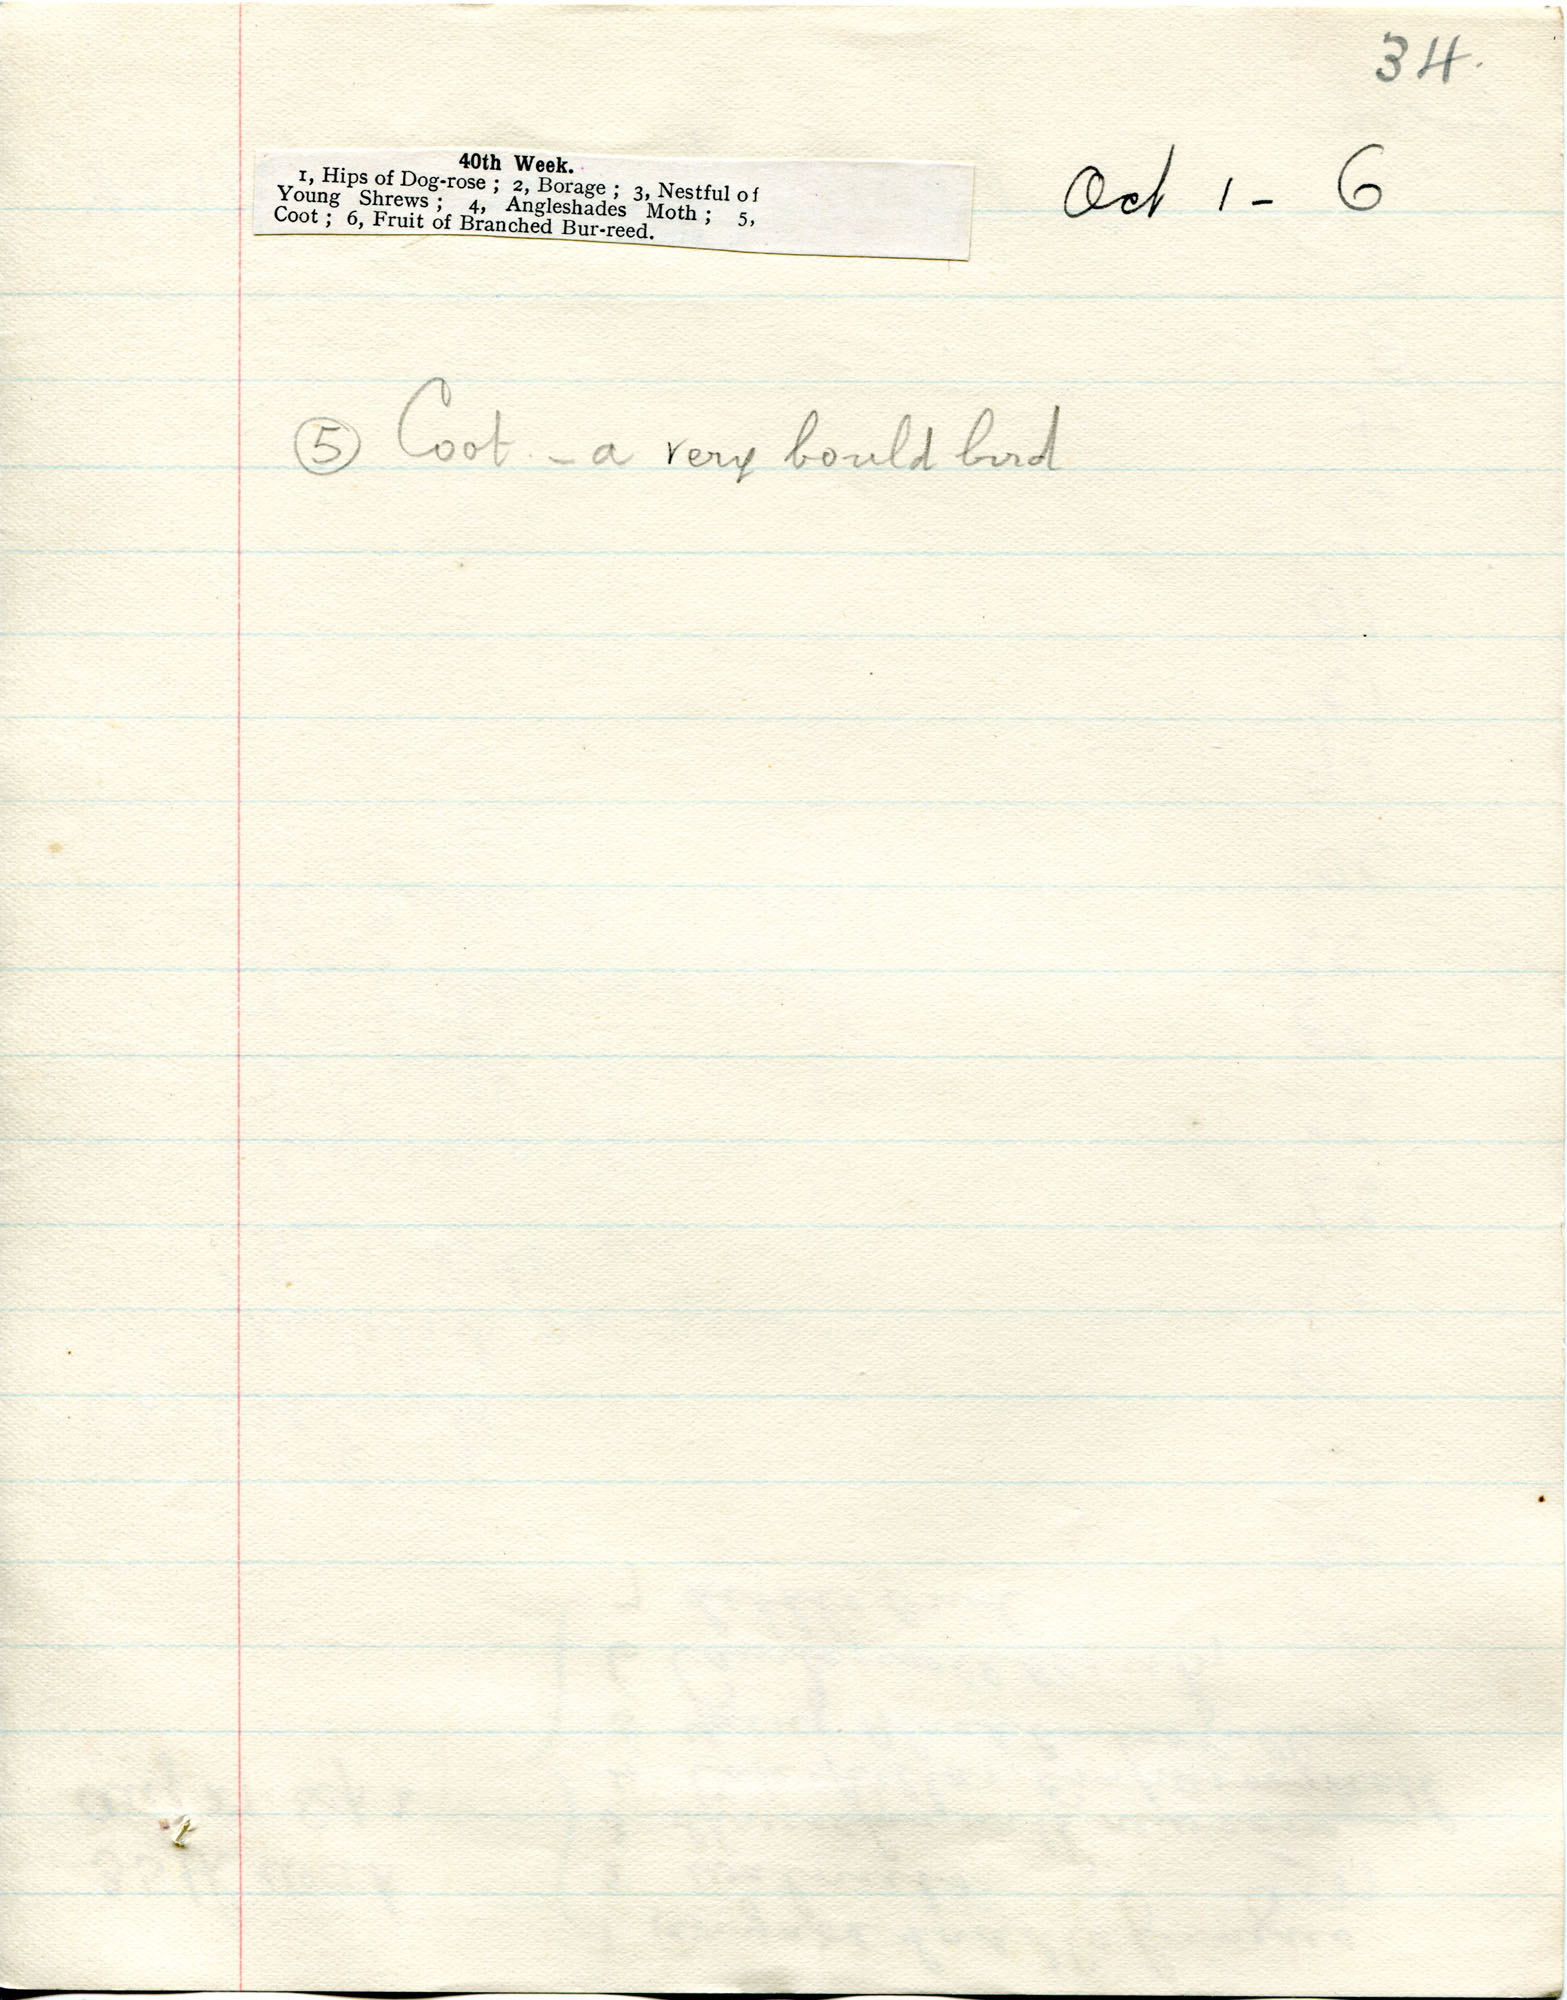 34.
40th Week.
1, Hips of Dog-rose ; 2, Borage ; 3, Nestful of
Young Shrews ; 4, Angleshades Moth ; 5,
Coot ; 6, Fruit of Branched Bur-reed.
Oct 1 - 6
⑤ Coot - a very bould bird